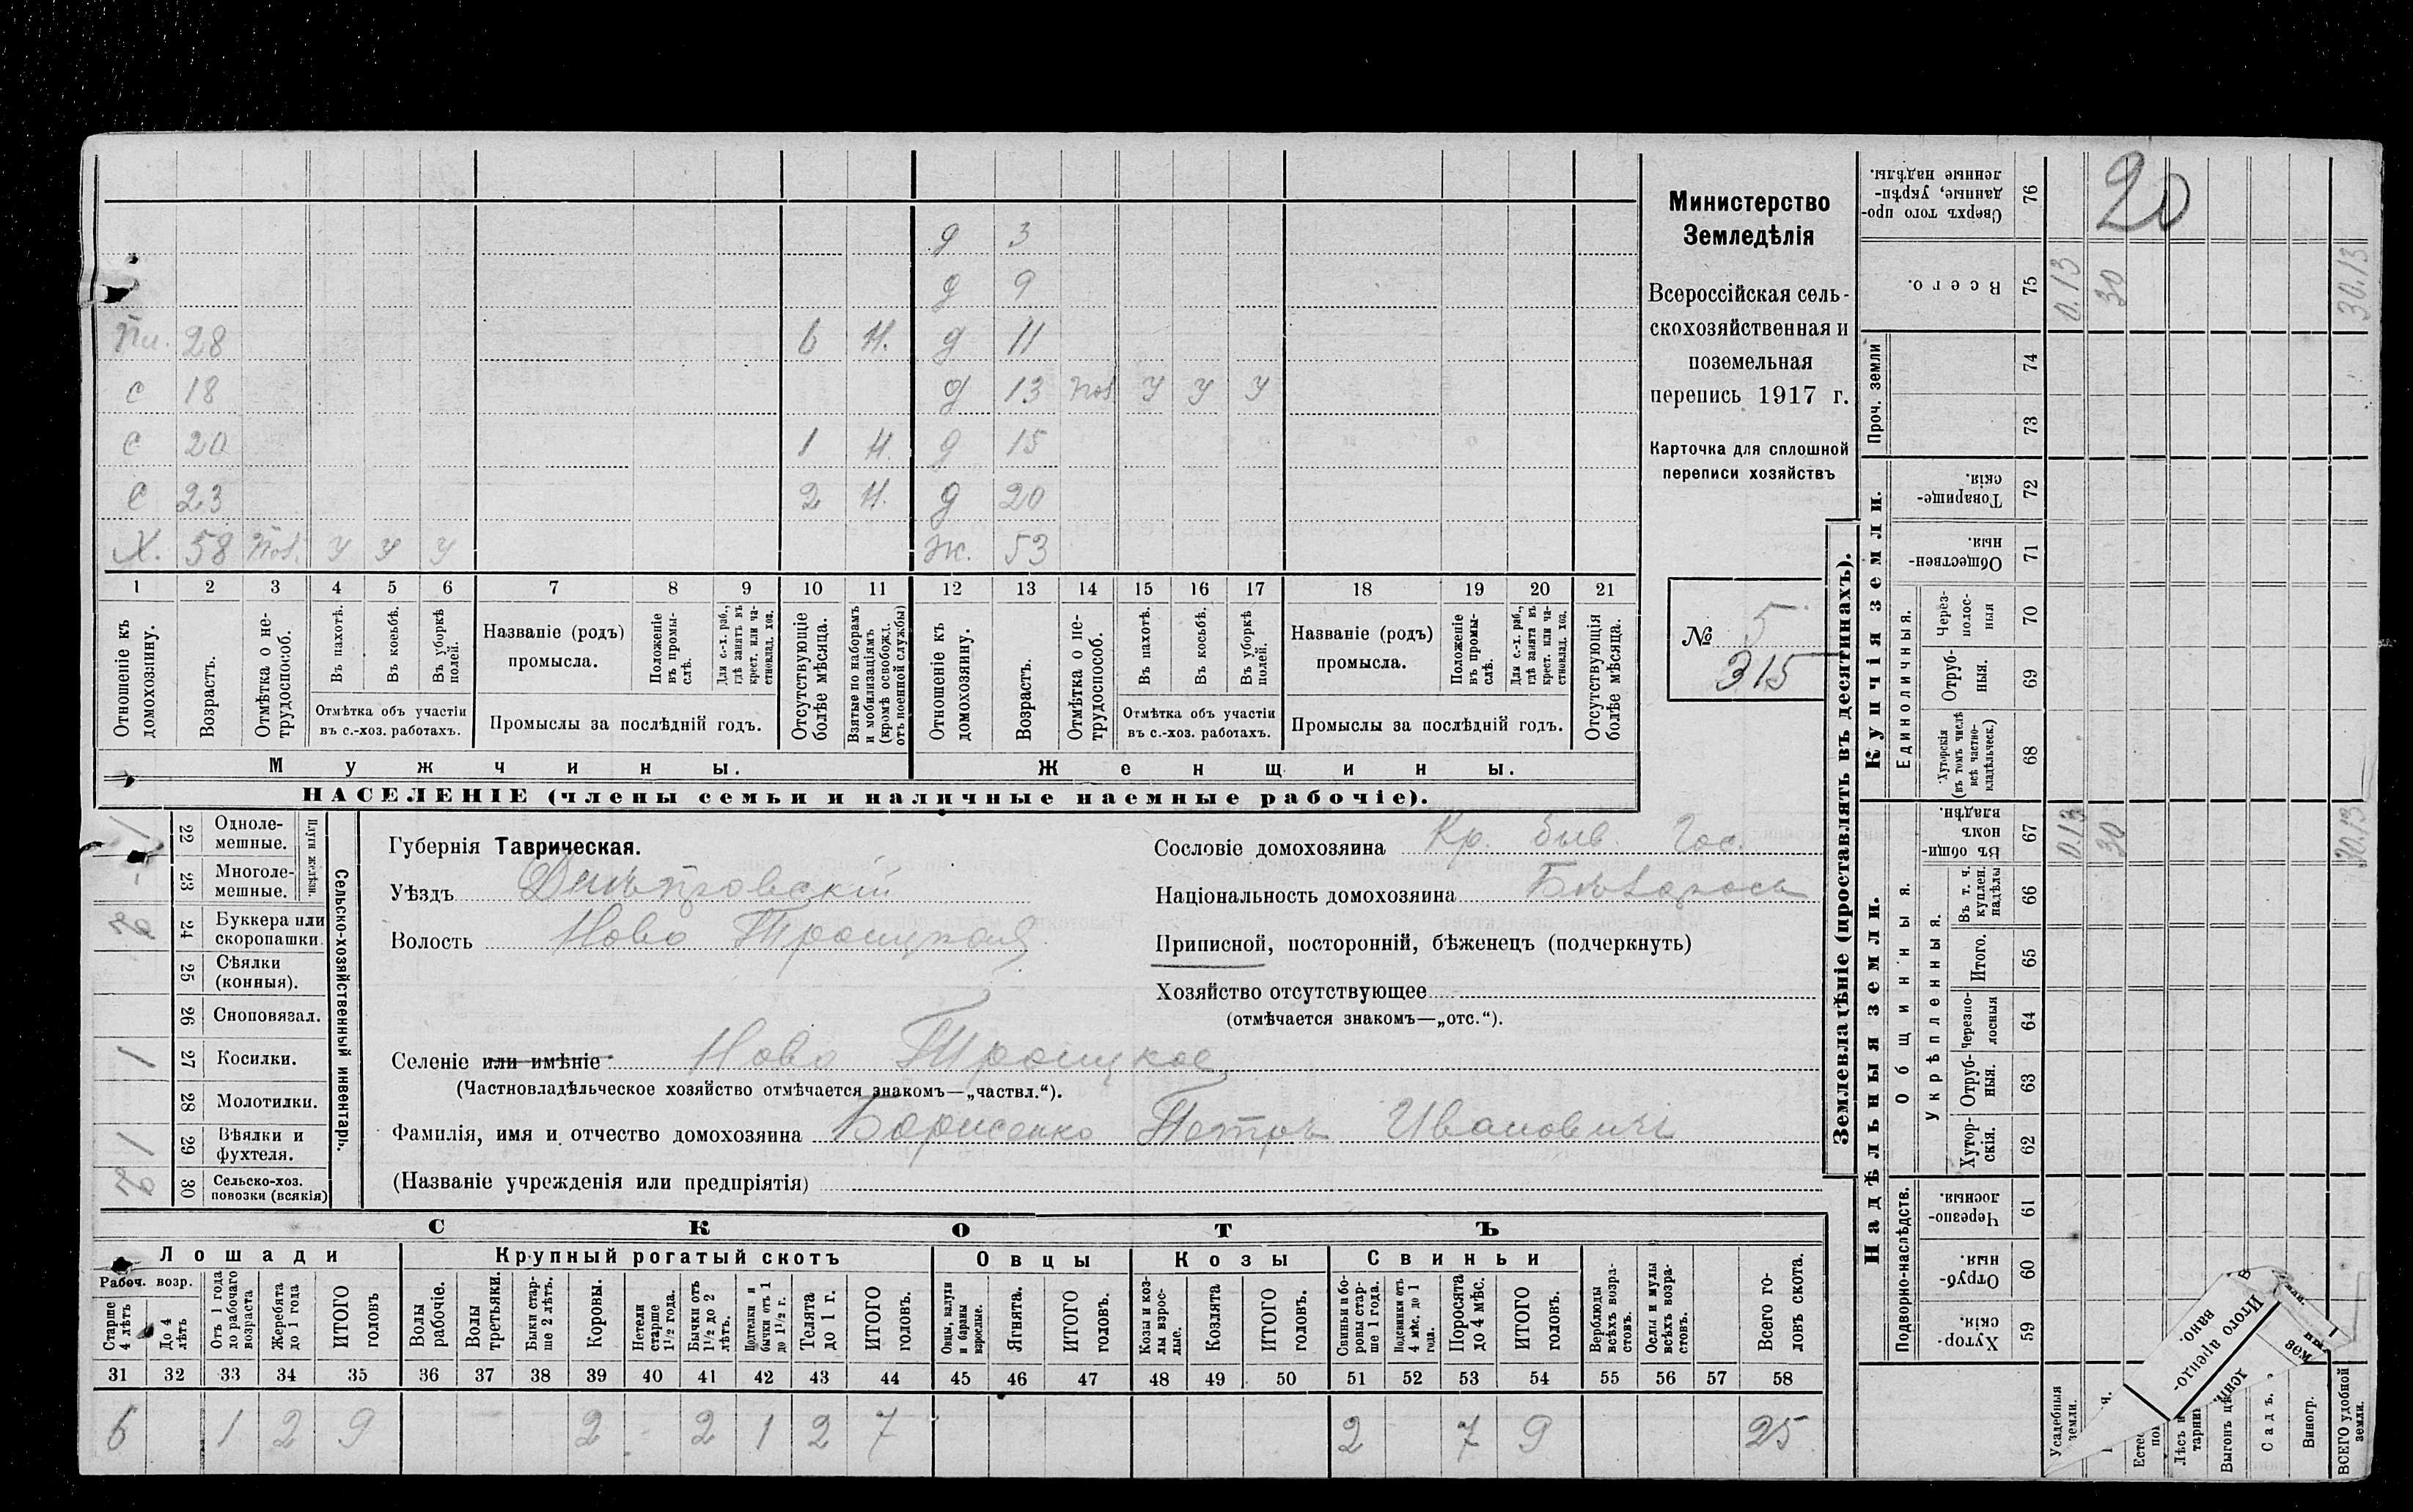 Министерство
Земледѣлія
Всероссійская сель-
скохозяйственная и
поземельная
перепись 1917 г.
Карточка для сплошной
переписи хозяйствъ
№ 5.
315
д 3
д 9
Пл. 28 6 Н. д 11
с 18 д 13 Пол У У У
с 20 1 Н. д 15
с 23 2 Н. д 20
Х. 58 Пол. У У У Ж. 53
1 2 3 4 5 6 7 8 9 10 11 12 13 14 15 16 17 18 19 20 21
Отношеніе къ домохозяину.
Возрастъ.
Отмѣтка о не-трудоспособ.
Въ пахотѣ.
Въ косьбѣ.
Въ уборкѣ полей.
Отмѣтка объ участіи
въ с.-хоз. работахъ.
Названіе (родъ)
промысла.
Положеніе въ промы-слѣ.
Для с.-х. раб., гдѣ занятъ въ крест. или ча-стновлад. хоз.
Промыслы за послѣдній годъ.
Отсутствующіе болѣе мѣсяца.
Взятые по наборамъ и мобилизаціямъ (кромѣ освобожд. отъ военной службы)
Отношеніе къ домохозяину.
Возрастъ.
Отмѣтка о не-трудоспособ.
Въ пахотѣ.
Въ косьбѣ.
Въ уборкѣ полей.
Отмѣтка объ участіи
въ с.-хоз. работахъ.
Названіе (родъ)
промысла.
Положеніе въ промы-слѣ.
Для с.-х. раб., гдѣ занята въ крест. или ча-стновлад. хоз.
Промыслы за послѣдній годъ.
Отсутствующія болѣе мѣсяца.
Мужчины.
Женщины.
НАСЕЛЕНІЕ (члены семьи и наличные наемные рабочіе).
Сельско-хозяйственный инвентарь.
Плуги желѣзн.
1 22 Одноле-мешные.
23 Многоле-мешные.
24 Буккера или скоропашки.
25 Сѣялки (конныя).
26 Сноповязал.
1 27 Косилки.
28 Молотилки.
1 29 Вѣялки и фухтеля.
30 Сельско-хоз. повозки (всякія)
Губернія Таврическая.
Уѣздъ Днѣпровскій
Волость Ново Троицкая
Селеніе или имѣніе Ново Троицкое
(Частновладѣльческое хозяйство отмѣчается знакомъ—„частвл.“).
Фамилія, имя и отчество домохозяина Борисенко Петръ Ивановичъ
(Названіе учрежденія или предпріятія)
Сословіе домохозяина Кр. быв. Гос.
Національность домохозяина
Приписной, посторонній, бѣженецъ (подчеркнуть)
Хозяйство отсутствующее
(отмѣчается знакомъ—„отс.“).
СКОТЪ
Лошади
Крупный рогатый скотъ
Овцы
Козы
Свиньи
Рабоч. возр.
Старше 4 лѣтъ
До 4 лѣтъ
Отъ 1 года до рабочаго возраста
Жеребята до 1 года
ИТОГО головъ
Волы рабочіе.
Волы третьяки.
Быки стар-ше 2 лѣтъ.
Коровы.
Нетели старше 1½ года.
Бычки отъ 1½ до 2 лѣтъ.
Подтелки и бычки отъ 1 до 1½ г.
Телята до 1 г.
ИТОГО головъ.
Овцы, валухи и бараны взрослые.
Ягнята.
ИТОГО головъ.
Козы и коз-лы взрос-лые.
Козлята
ИТОГО головъ.
Свиньи и бо-ровы стар-ше 1 года.
Подсвинки отъ 4 мѣс. до 1 года.
Поросята до 4 мѣс.
ИТОГО головъ.
Верблюды всѣхъ возра-стовъ.
Ослы и мулы всѣхъ возра-стовъ.
Всего го-ловъ скота.
31 32 33 34 35 36 37 38 39 40 41 42 43 44 45 46 47 48 49 50 51 52 53 54 55 56 57 58
6 1 2 9 2 2 1 2 7 2 7 9 25
Землевладѣніе (проставлять въ десятинахъ).
Надѣльныя земли.
Купчія земли.
Проч. земли
Подворно-наслѣдств.
Общинныя.
Укрѣпленныя.
Единоличныя.
Сверхъ того про-данные, укрѣп-ленные надѣлы. 76
20
Всего. 75 0.13 30 30.13
74
73
Товарище-скія. 72
Обществен-ныя. 71
Через-полос-ныя 70
Отруб-ныя. 69
Хуторскія (въ томъ числѣ всѣ частно-владѣльческ.) 68
Въ общин-номъ владѣн. 67 0.13 30 30.13
Въ т. ч. куплен. надѣлы 66
Итого. 65
Черезпо-лосныя 64
Отруб-ныя. 63
Хутор-скія. 62
Черезпо-лосныя. 61
Отруб-ныя. 60
Хутор-скія. 59
Усадебныя земли.
Выгонъ
Садъ.
Виногр.
ВСЕГО удобной земли.
Итого арендо-вано.